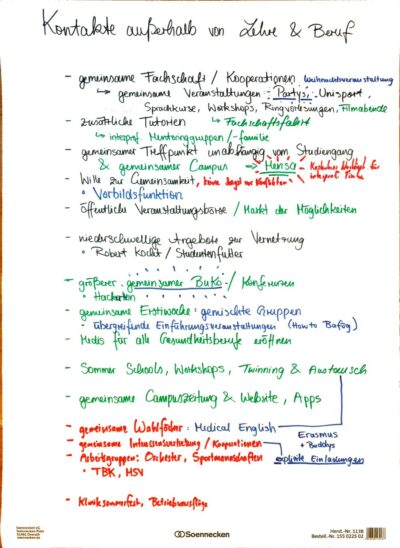 Kontakte außerhalb von Lehre & Beruf
- gemeinsame Fachschaft / Kooperationen Weihnachtsveranstaltung
↳ gemeinsame Veranstaltungen: Partys, Unisport,
Sprachkurse, Workshops, Ringvorlesungen, Filmabende
- zusätzliche Tutorien ↳ Fachschaftsfahrt
↳ interprof. Mentoringgruppen /-familie
- gemeinsamer Treffpunkt unabhängig vom Studiengang
& gemeinsamer Campus → Mensa für
- Wille zur Gemeinsamkeit, keine Angst vor interprof.
• Vorbildsfunktion
- öffentliche Veranstaltungsbörse / Markt der Möglichkeiten
- niederschwellige Angebote zur Vernetzung
• Robert Kocht / Studentenfutter
- größerer gemeinsamer BuKo / Konferenzen
• Hackarton
- gemeinsame Erstiwoche: gemischte Gruppen
• übergreifende Einführungsveranstaltungen (How to Bafög)
- Medis für alle Gesundheitsberufe eröffnen
- Sommer Schools, Workshops, Twinning & Austausch
- gemeinsame Campuszeitung & Website, Apps
- gemeinsame Wahlfächer: Medical English
- gemeinsame Interessensvertretung / Kooperationen
Erasmus
+ Buddys
- Arbeitsgruppen: Orchester, Sportmannschaften
explizite Einladungen
• TBK, MSV
- Kliniksommerfest, Betriebsausflüge
Soennecken eG
Soennecken-Platz
51491 Overath
soennecken.de
Soennecken
Herst.-Nr. 1138
Bestell.-Nr. 155 0225 02